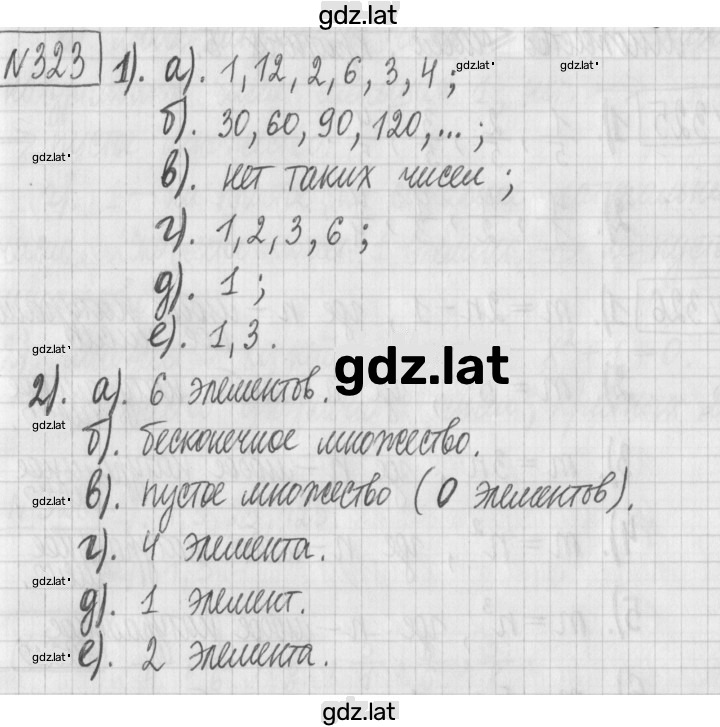 gdz.lat
№323 1). а). 1, 12, 2, 6, 3, 4 ; gdz.lat gdz.lat
б). 30, 60, 90, 120, ... ;
gdz.lat
в). нет таких чисел ;
г). 1, 2, 3, 6 ;
д). 1 ;
е). 1, 3 .
gdz.lat
gdz.lat
2). а). 6 элементов.
gdz.lat
б). бесконечное множество.
в). пустое множество ( 0 элементов).
gdz.lat
г). 4 элемента.
gdz.lat
д). 1 элемент.
е). 2 элемента.
gdz.lat
gdz.lat